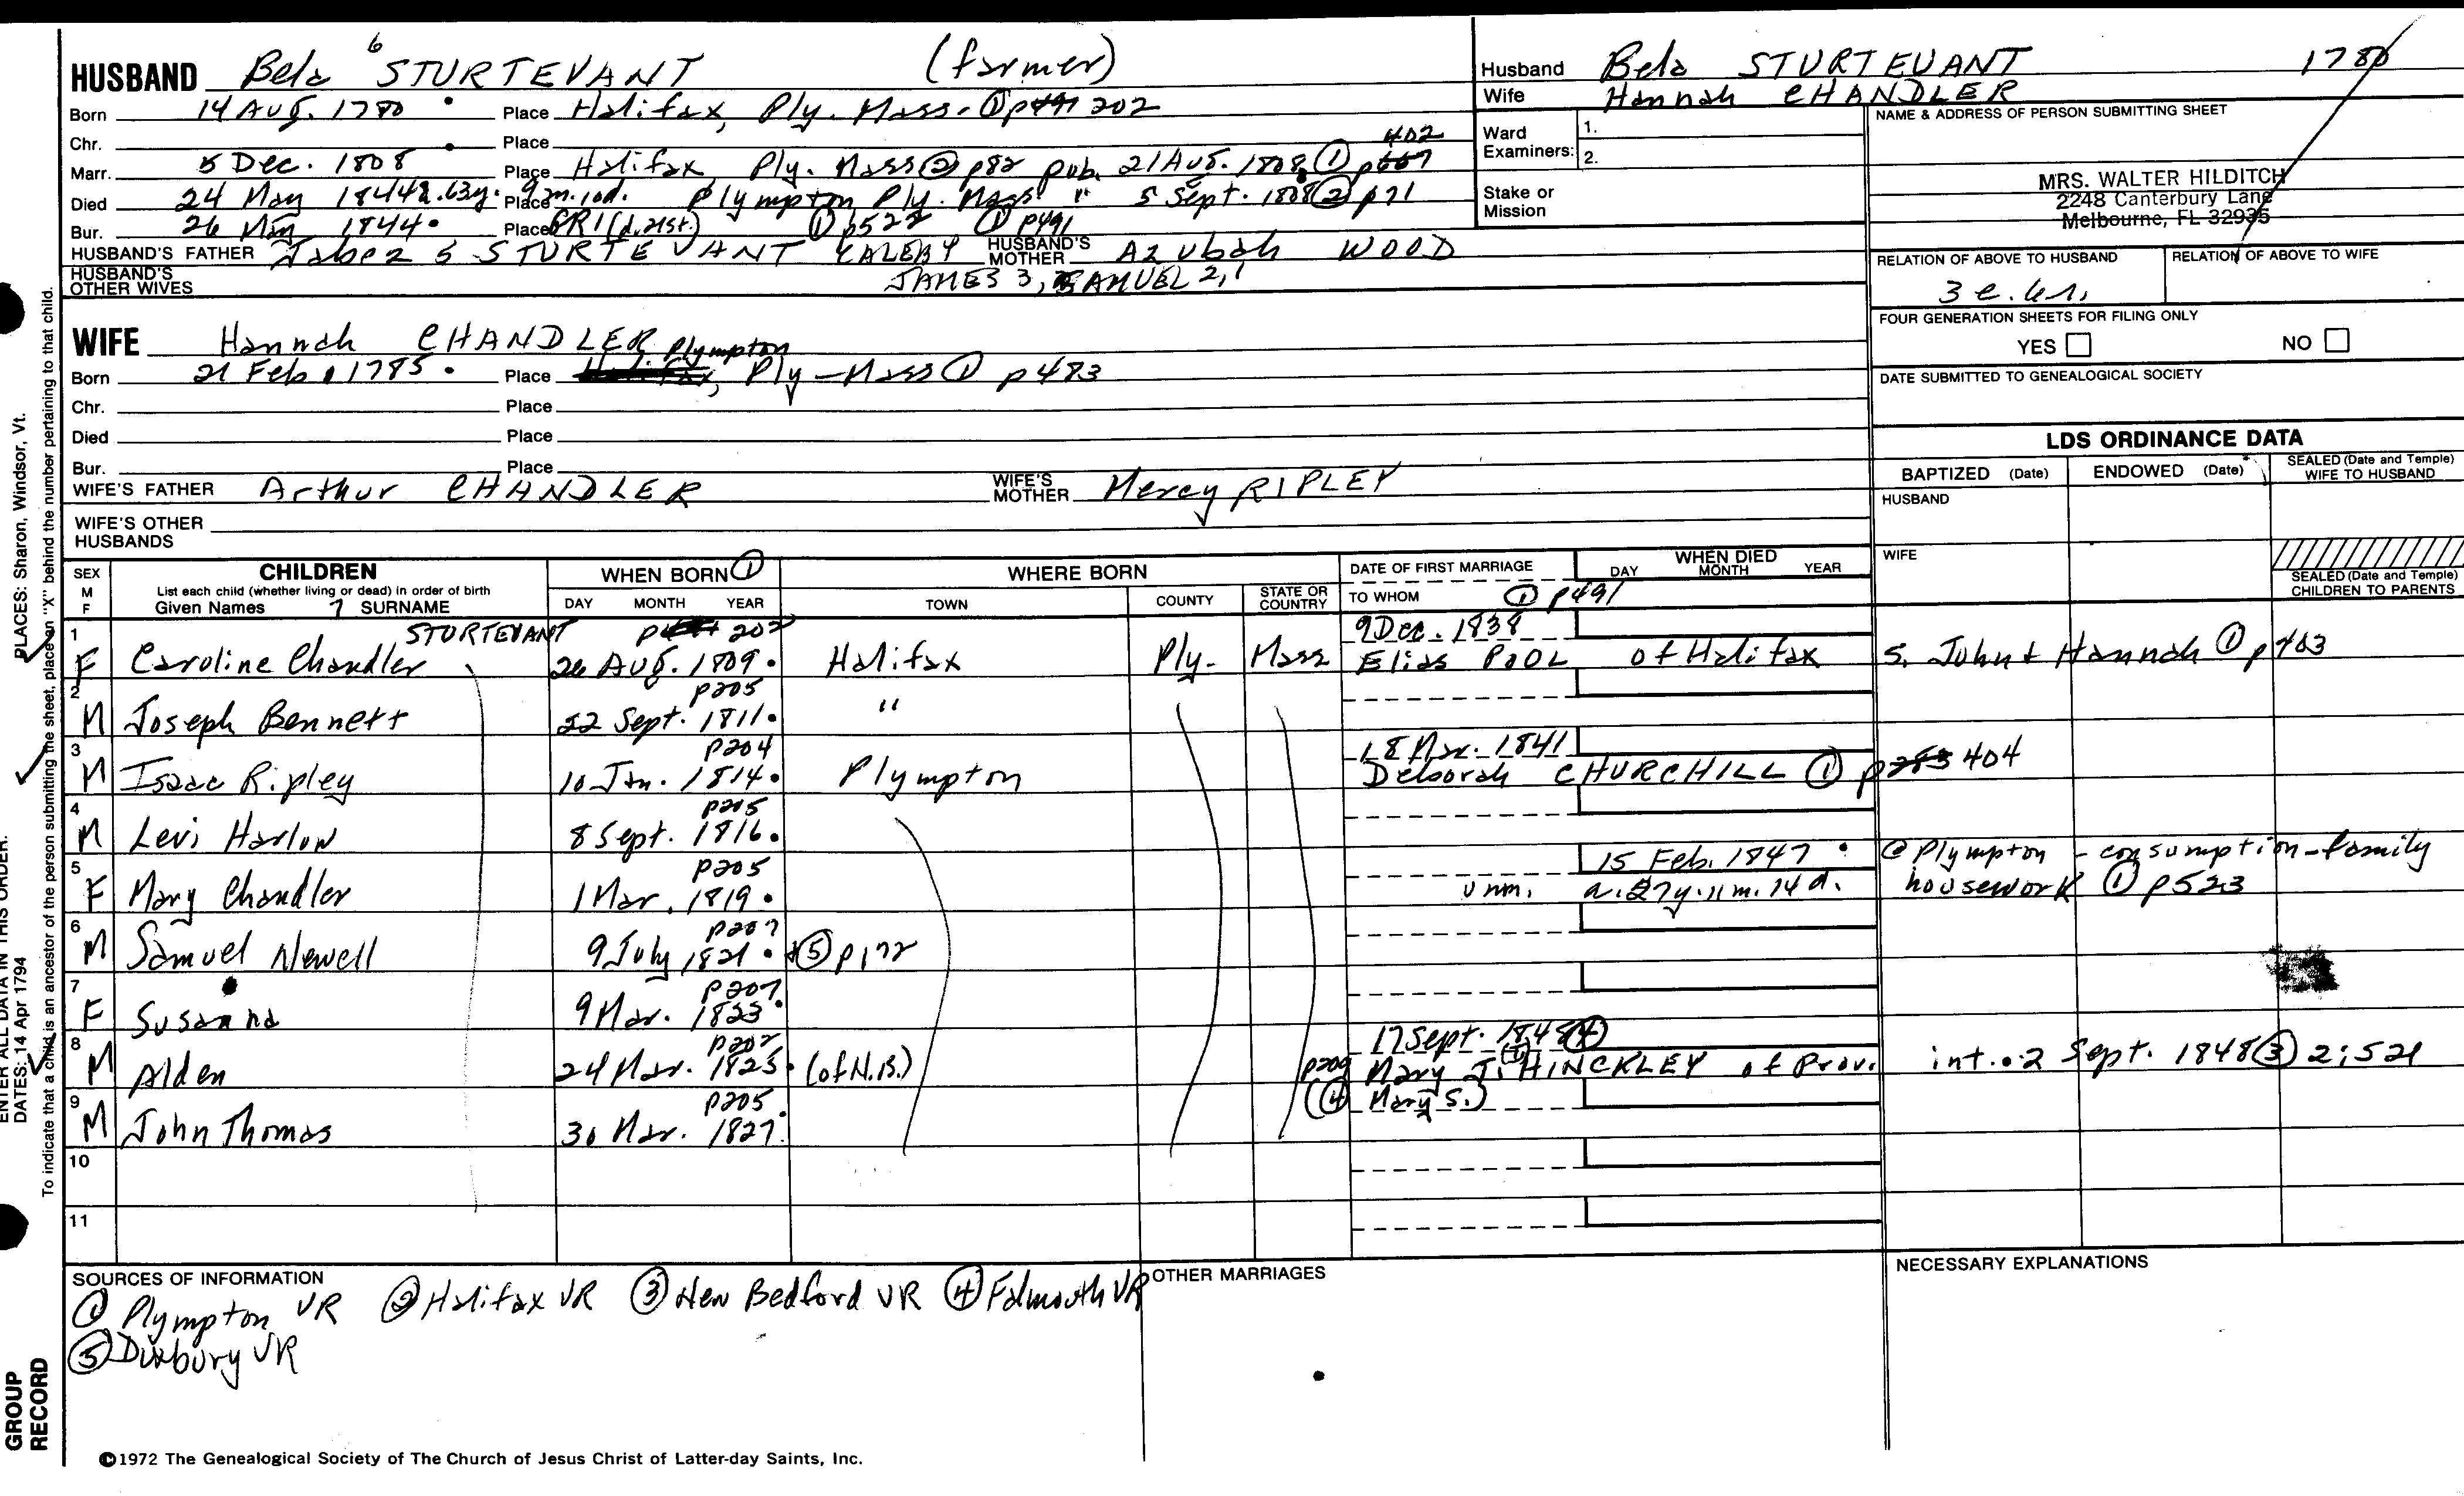 HUSBAND Bela 6 STURTEVANT (farmer)
Born 14 Aug. 1780 Place Halifax, Ply. Mass. ① p491 202
Chr. Place
Marr. 5 Dec. 1808 Place Halifax Ply. Mass ② p82 pub. 21 Aug. 1808 ① p667 402
Died 24 May 1844 a. 63y. 9m. 10d. Place Plympton Ply. Mass " 5 Sept. 1808 ② p71
Bur. 26 May 1844 Place GR1 (d. 21st.) ① p522 ① p491
HUSBAND'S FATHER Jabez 5 STURTEVANT CALEB 4 HUSBAND'S MOTHER Azubah WOOD
HUSBAND'S OTHER WIVES JAMES 3, SAMUEL 2,1
Husband Bela STURTEVANT 1780
Wife Hannah CHANDLER
Ward Examiners: 1.
2.
Stake or Mission
NAME & ADDRESS OF PERSON SUBMITTING SHEET
MRS. WALTER HILDITCH
2248 Canterbury Lane
Melbourne, FL 32935
RELATION OF ABOVE TO HUSBAND RELATION OF ABOVE TO WIFE
FOUR GENERATION SHEETS FOR FILING ONLY
YES NO
DATE SUBMITTED TO GENEALOGICAL SOCIETY
WIFE Hannah CHANDLER
Born 21 Feb. 1785 Place Halifax, Plympton Ply - Mass ① p483
Chr. Place
Died Place
Bur. Place
WIFE'S FATHER Arthur CHANDLER WIFE'S MOTHER Mercy RIPLEY
WIFE'S OTHER HUSBANDS
LDS ORDINANCE DATA
BAPTIZED (Date) ENDOWED (Date) SEALED (Date and Temple) WIFE TO HUSBAND
HUSBAND
WIFE
SEALED (Date and Temple) CHILDREN TO PARENTS
SEX M F CHILDREN List each child (whether living or dead) in order of birth Given Names 7 SURNAME
WHEN BORN ① DAY MONTH YEAR
WHERE BORN TOWN COUNTY STATE OR COUNTRY
DATE OF FIRST MARRIAGE TO WHOM ① p491
WHEN DIED DAY MONTH YEAR
1 STURTEVANT p202 9 Dec. 1838
F Caroline Chandler 26 Aug. 1809 Halifax Ply. Mass Elias POOL of Halifax s. John & Hannah ① p403
2 p205
M Joseph Bennett 22 Sept. 1811 "
3 p204 18 Mar. 1841
M Isaac Ripley 10 Jan. 1814 Plympton Deborah CHURCHILL ① p283 404
4 p205
M Levi Harlow 8 Sept. 1816
5 p205 15 Feb. 1847 @ Plympton - consumption - family
F Mary Chandler 1 Mar. 1819 unm. a. 27y. 11m. 14d. housework ① p523
6 p207
M Samuel Newell 9 July 1821 + ⑤ p172
7 p207
F Susanna 9 Mar. 1823
8 p202 17 Sept. 1848 ④
M Alden 24 Mar. 1825 (of N.B.) p209 Mary J. HINCKLEY of Prov. int. 2 Sept. 1848 ③ 2:521
9 p205 (④ Mary S.)
M John Thomas 30 Mar. 1827
10
11
SOURCES OF INFORMATION
① Plympton VR ② Halifax VR ③ New Bedford VR ④ Falmouth VR
⑤ Duxbury VR
OTHER MARRIAGES
NECESSARY EXPLANATIONS
©1972 The Genealogical Society of The Church of Jesus Christ of Latter-day Saints, Inc.
PLACES: Sharon, Windsor, Vt.
ENTER ALL DATA IN THIS ORDER:
DATES: 14 Apr 1794
To indicate that a child is an ancestor of the person submitting the sheet, place an "X" behind the number pertaining to that child.
GROUP
RECORD